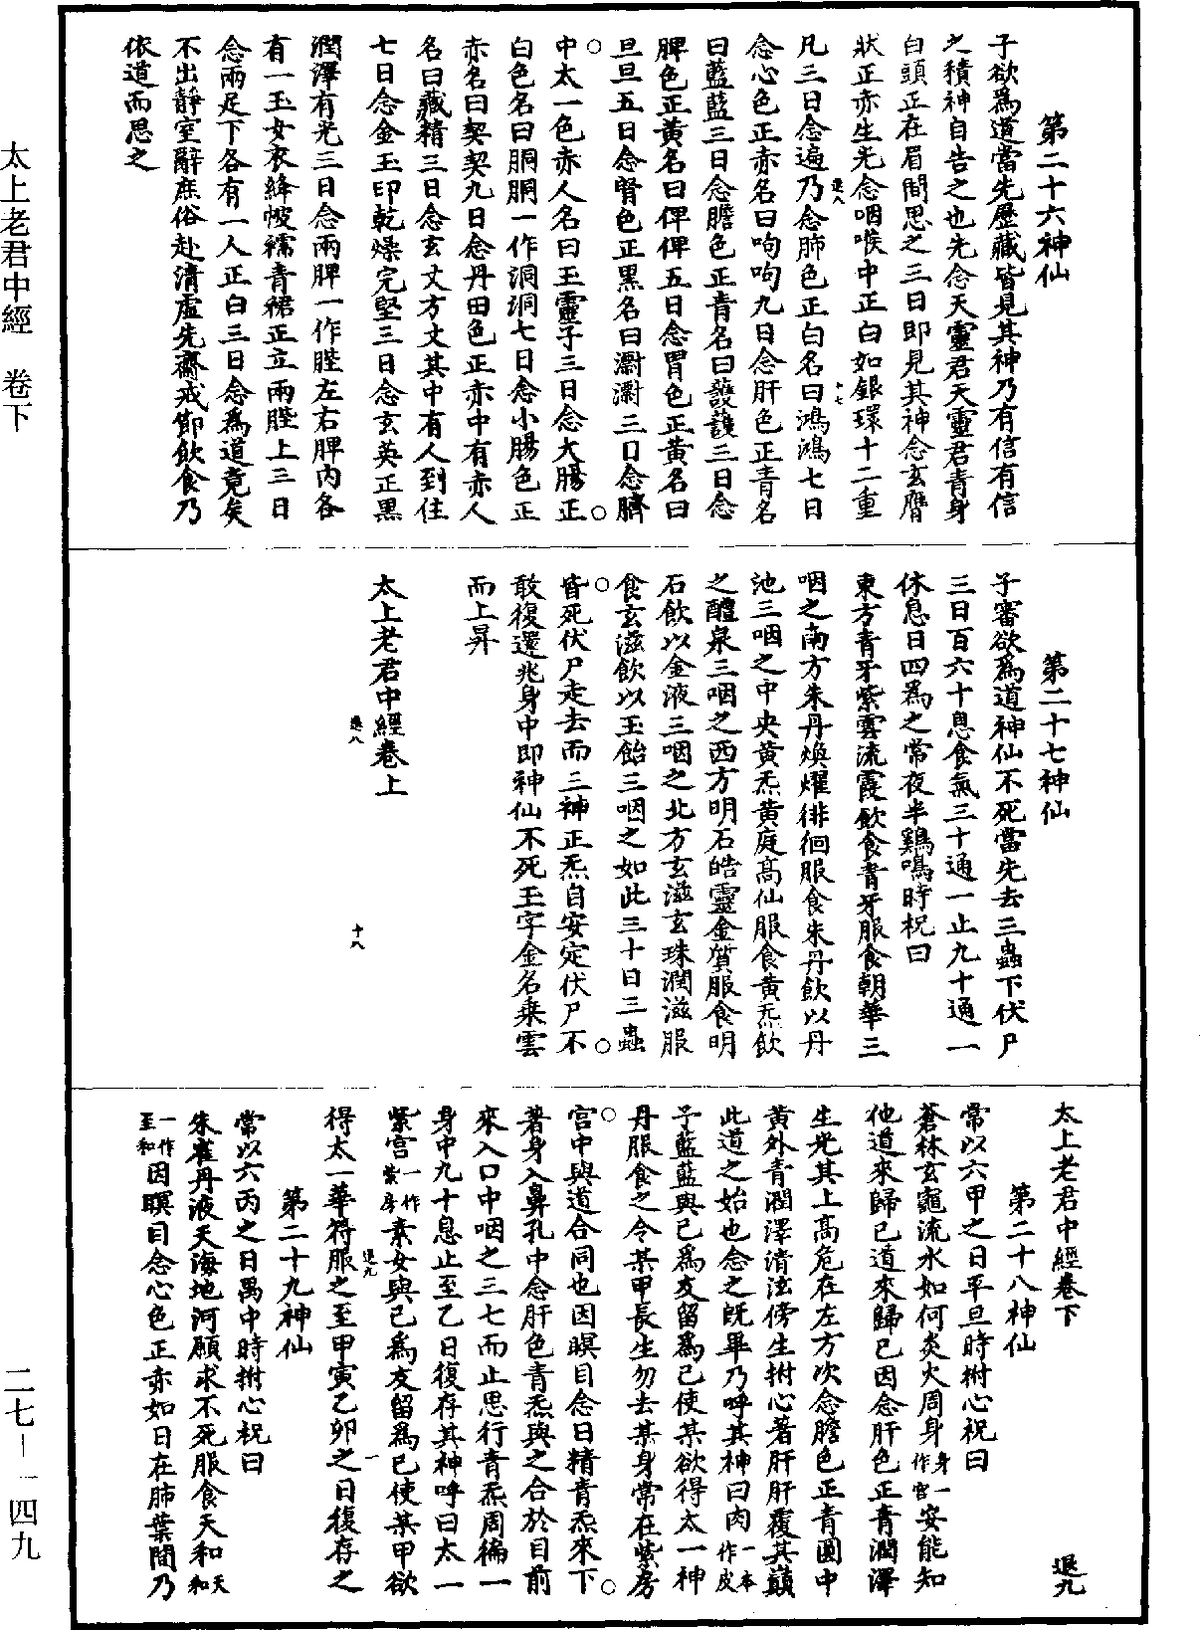 太上老君中經 卷下
第二十六神仙
子欲為道當先歷藏皆見其神乃有信有信
之積神自告之也先念天靈君天靈君青身
白頭正在眉間思之三日即見其神念玄膺
狀正赤生光念咽喉中正白如銀環十二重
退八 十七
凡三日念遍乃念肺色正白名曰鴻鴻七日
念心色正赤名曰呴呴九日念肝色正青名
曰藍藍三日念膽色正青名曰護護三日念
脾色正黃名曰俾俾五日念胃色正黃名曰
旦旦五日念腎色正黑名曰㶉㶉三日念臍
中太一色赤人名曰玉靈子三日念大腸正
白色名曰胴胴一作洞洞七日念小腸色正
赤名曰契契九日念丹田色正赤中有赤人
名曰藏精三日念玄丈方丈其中有人到住
七日念金玉印乾燥完堅三日念玄英正黑
潤澤有光三日念兩脾一作䏶左右脾內各
有一玉女衣絳帔襦青裙正立兩䏶上三日
念兩足下各有一人正白三日念為道竟矣
不出靜室辭庶俗赴清虛先齋戒節飲食乃
依道而思之
第二十七神仙
子審欲為道神仙不死當先去三蟲下伏尸
三日百六十息食氣三十通一止九十通一
休息日四為之常夜半雞鳴時祝曰
東方青牙紫雲流霞飲食青牙服食朝華三
咽之南方朱丹煥燿徘徊服食朱丹飲以丹
池三咽之中央黃炁黃庭高仙服食黃炁飲
之醴泉三咽之西方明石皓靈金質服食明
石飲以金液三咽之北方玄滋玄珠潤滋服
食玄滋飲以玉飴三咽之如此三十日三蟲
皆死伏尸走去而三神正炁自安定伏尸不
敢復還兆身中即神仙不死玉字金名乘雲
而上昇
退八 十八
太上老君中經卷上
太上老君中經卷下 退九
第二十八神仙
常以六甲之日平旦時拊心祝曰
蒼林玄龜流水如何炎火周身身一作宮安能知
他道來歸已道來歸已因念肝色正青潤澤
生光其上高危在左方次念膽色正青圓中
黃外青潤澤清泫傍生拊心著肝肝覆其巔
此道之始也念之既畢乃呼其神曰肉一本作皮
子藍藍與已為友留為已使某欲得太一神
丹服食之令某甲長生勿去某身常在紫房
宮中與道合同也因瞑目念日精青炁來下
著身入鼻孔中念肝色青炁與之合於目前
來入口中咽之三七而止思行青炁周徧一
身中九十息止至乙日復存其神呼曰太一
紫宮一作紫房素女與已為友留為已使某甲欲
退九 一
得太一華符服之至甲寅乙卯之日復存之
第二十九神仙
常以六丙之日禺中時拊心祝曰
朱雀丹液天海地河願求不死服食天和天和
一作至和因瞑目念心色正赤如日在肺葉間乃
二七-一四九